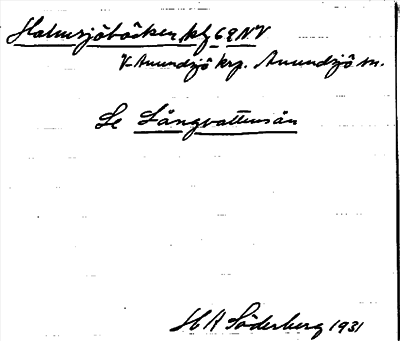 Holmsjöbäcken, kbf 69 NV
V-Anundsjö krp. Anundsjö sn.
Se Långvattensån
H A Söderberg 1931